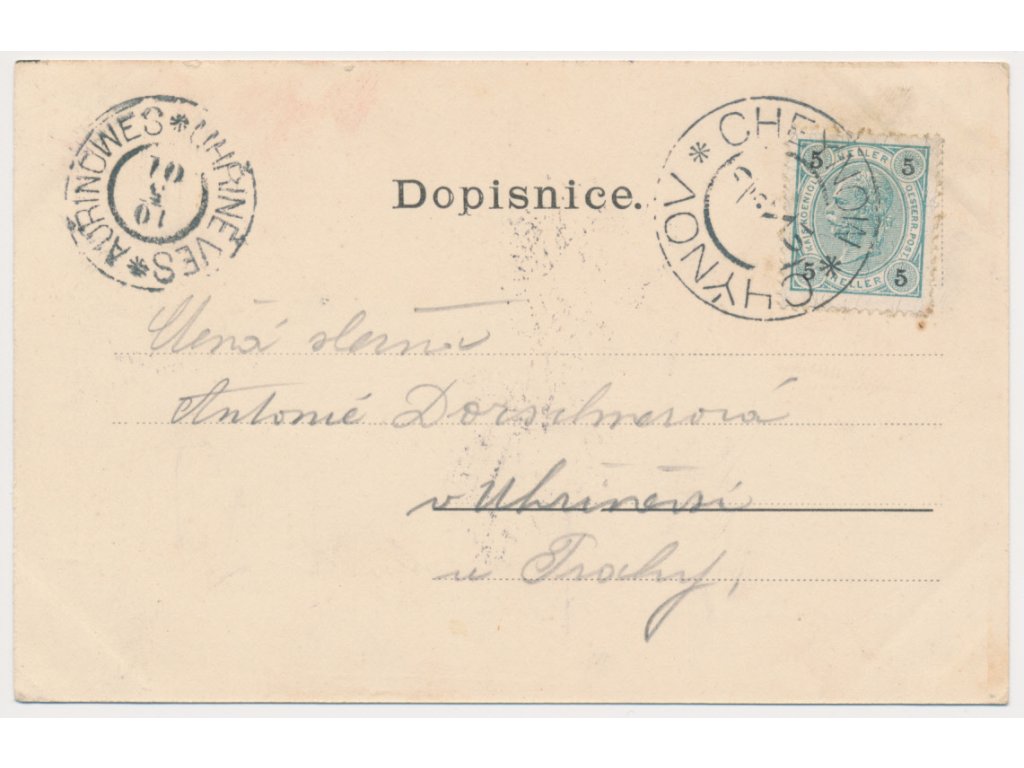 AUŘINOWES * UHŘINEVES *
10
5
01
CHEJNOW * CHÝNOV *
Dopisnice.
5 HELLER 5
KAIS. KOENIGL. OESTERR. POST
5 HELLER 5
Ctěná slečna
Antonie Dorschnerová
v Uhříněvsi
u Prahy,